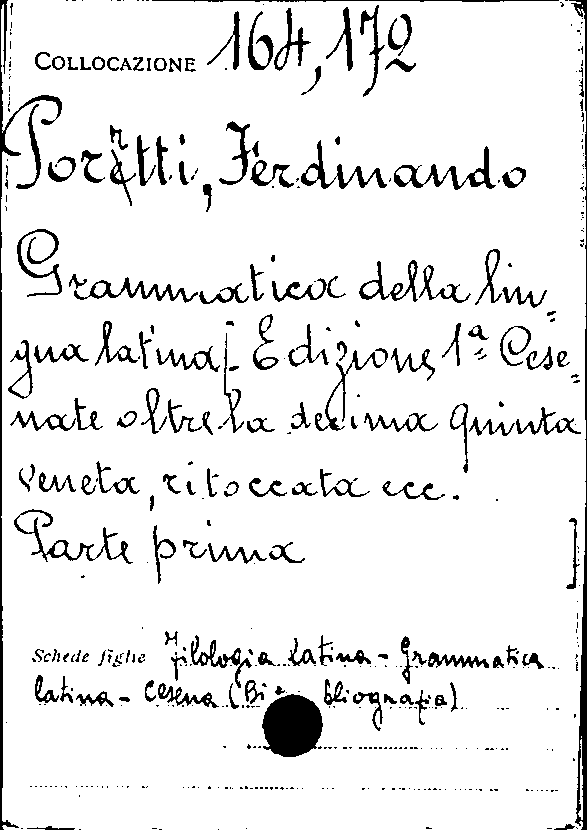 COLLOCAZIONE 164,172
Porretti, Ferdinando
Grammatica della lin=
gua latina[. Edizione 1ª Cese=
nate oltre la decima quinta
veneta, ritoccata ecc.
Parte prima ]
Schede figlie Filologia latina - Grammatica
latina - Cesena (Bi= bliografia)